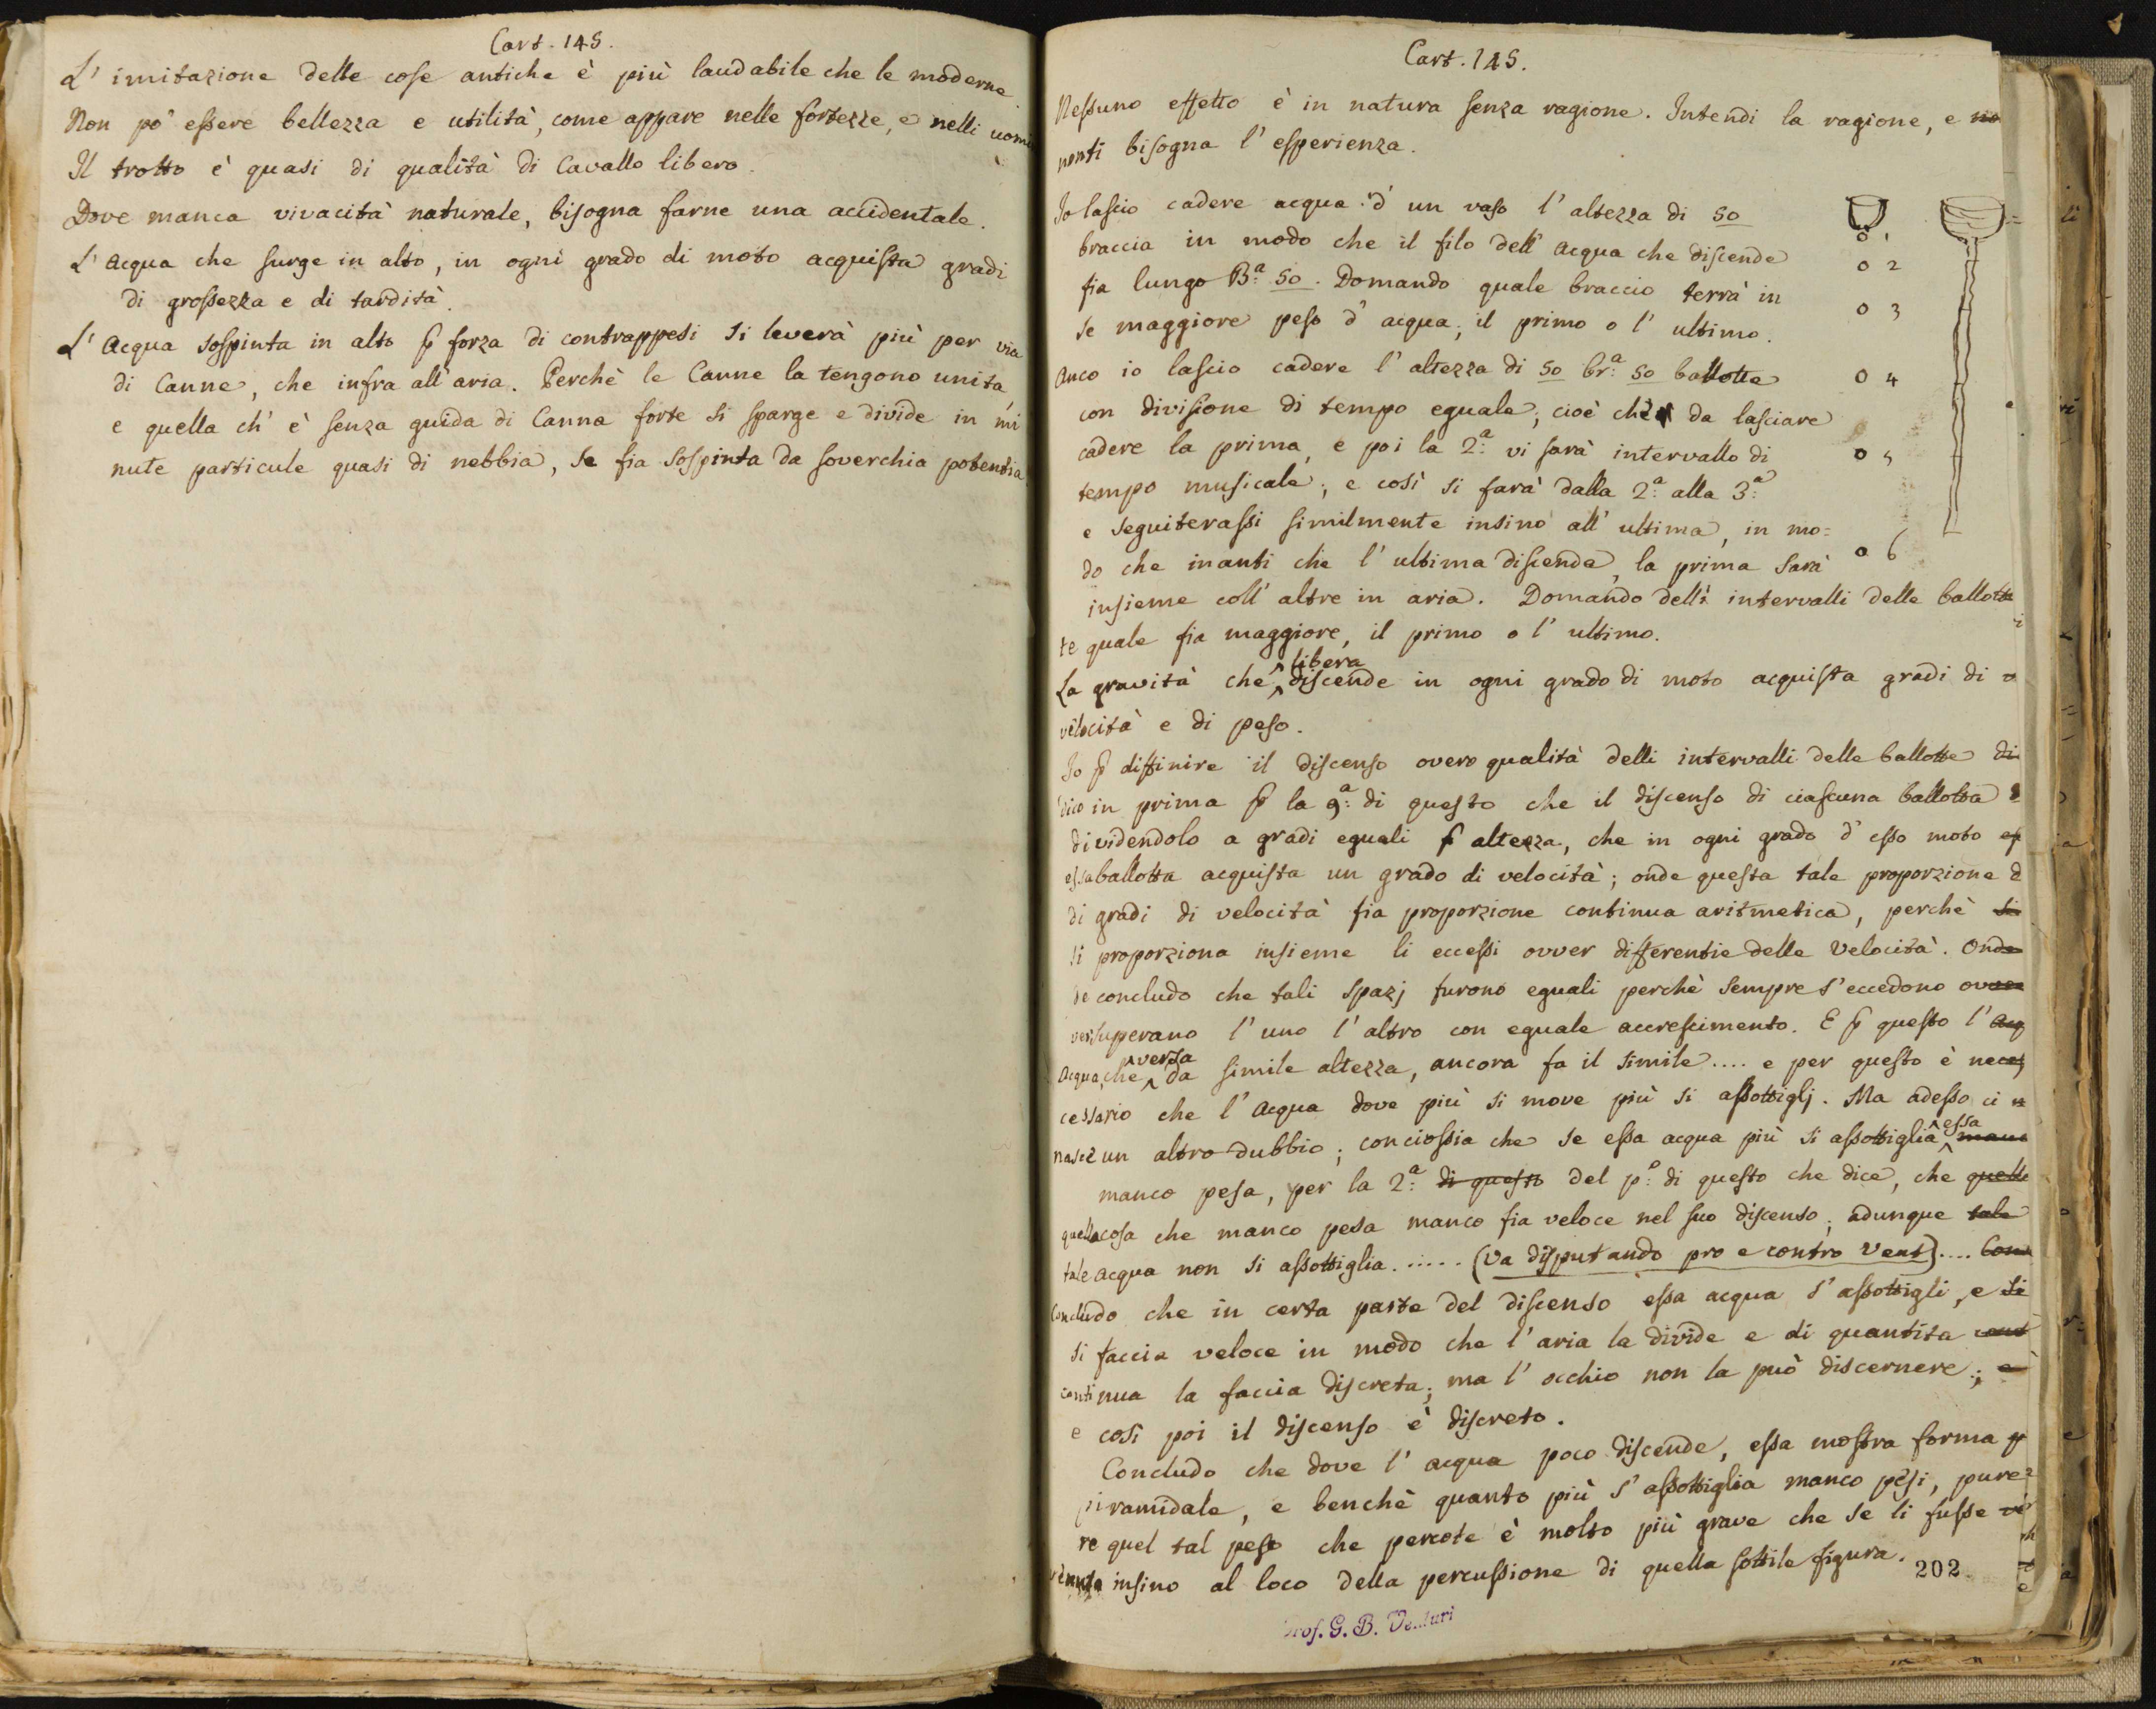 Cart. 145.
L' imitazione delle cose antiche è più laudabile che le moderne.
Non pò essere bellezza e utilità, come appare nelle fortezze, e nelli uomi
Il trotto è quasi di qualità di Cavallo libero.
Dove manca vivacità naturale, bisogna farne una accidentale.
L' Acqua che surge in alto, in ogni grado di moto acquista gradi
di grossezza e di tardità.
L' Acqua sospinta in alto ꝑ forza di contrappesi si leverà più per via
di Canne, che infra all' aria. Perchè le Canne la tengono unita,
e quella ch' è senza guida di Canna forte si sparge e divide in mi
nute particule quasi di nebbia, se fia sospinta da soverchia potentia
Cart. 145.
Nessuno effetto è in natura senza ragione. Intendi la ragione, e no
nonti bisogna l' esperienza.
Io lascio cadere acqua d' un vaso l' altezza di 50
braccia in modo che il filo dell' Acqua che discende
fia lungo B.ª 50. Domando quale braccio terrà in
se maggiore peso d' acqua, il primo o l' ultimo.
Anco io lascio cadere l' altezza di 50 br.ª 50 ballotte
con divisione di tempo eguale, cioè che da lasciare
cadere la prima, e poi la 2.ª vi sarà intervallo di
tempo musicale; e così si farà dalla 2.ª alla 3.ª
e seguiterassi similmente insino all' ultima, in mo=
do che inanti che l' ultima discenda, la prima sarà
insieme coll' altre in aria. Domando delli intervalli delle ballotte
te quale fia maggiore, il primo o l' ultimo.
0 1
0 2
0 3
0 4
0 5
0 6
La gravità che ^ libera discende in ogni grado di moto acquista gradi di v
velocità e di peso.
Io ꝑ diffinire il discenso overo qualità delli intervalli delle ballotte di
dico in prima ꝑ la 9.ª di questo che il discenso di ciascuna ballotta
dividendolo a gradi eguali ꝑ altezza, che in ogni grado d' esso moto es
essa ballotta acquista un grado di velocità; onde questa tale proporzione d
di gradi di velocità fia proporzione continua aritmetica, perchè si
si proporziona insieme li eccessi ovver differentie delle Velocità. Onde
de concludo che tali spazj furono eguali perchè sempre s' eccedono over
ver superano l' uno l' altro con eguale accrescimento. E ꝑ questo l' acq
Acqua, che ^ versa da simile altezza, ancora fa il simile .... e per questo è neces
cessario che l' Acqua dove più si move più si assottiglj. Ma adesso ci n
nasce un altro dubbio; conciossia che se essa acqua più si assottiglia ^ essa manc
manco pesa, per la 2.ª di questo del p.º di questo che dice, che quella
quella cosa che manco pesa manco fia veloce nel suo discenso, adunque tale
tale acqua non si assottiglia. ..... (Va disputando pro e contro Vent) .... Con
Concludo che in certa parte del discenso essa acqua s' assottigli, e si
si faccia veloce in modo che l' aria la divide e di quantita cont
continua la faccia discreta; ma l' occhio non la può discernere; e
e così poi il discenso è discreto.
Concludo che dove l' acqua poco discende, essa mostra forma p
piramidale, e benchè quanto più s' assottiglia manco pesi, pure=
re quel tal peso che percote è molto più grave che se li fusse ve
venuta insino al loco della percussione di quella sottile figura.
202
Prof. G. B. Venturi